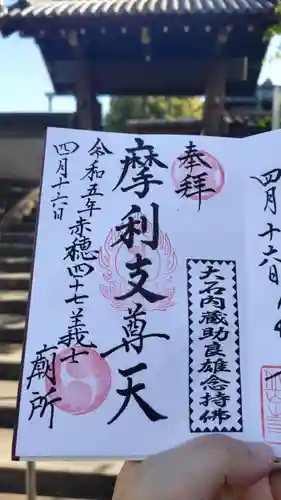 四月十六日
奉拝
摩利支尊天
大石内蔵助良雄念持佛
令和五年赤穂四十七義士
廟所
四月十六日